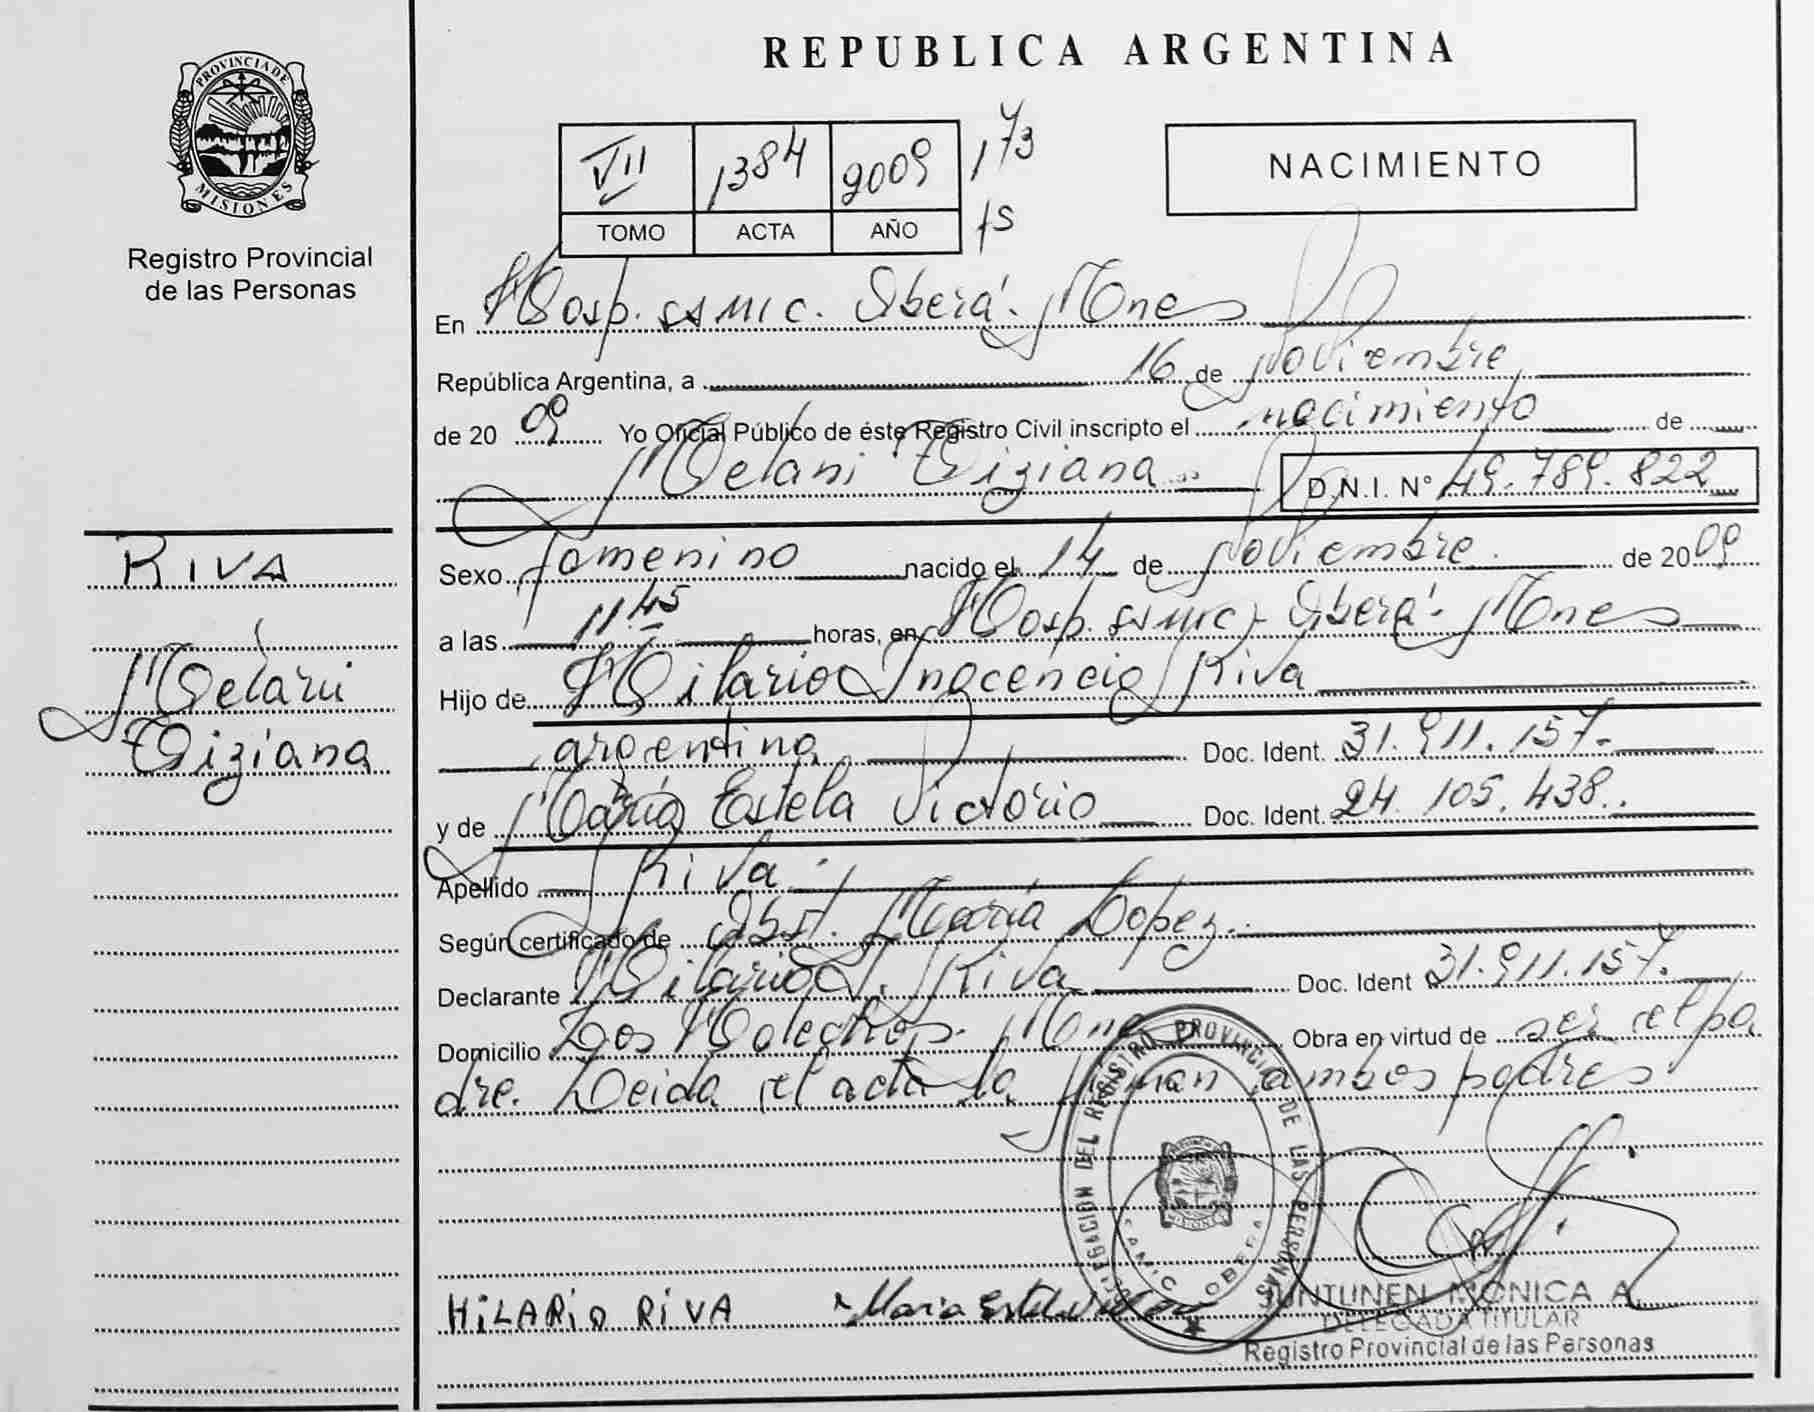 PROVINCIA DE
MISIONES
Registro Provincial
de las Personas
RIVA
Melani
Tiziana
REPUBLICA ARGENTINA
VII 1384 2009 173
TOMO ACTA AÑO 15
NACIMIENTO
En Hosp. SAMIC. Oberá. Mnes
República Argentina, a 16 de Noviembre
de 2009 Yo Oficial Público de éste Registro Civil inscripto el nacimiento de
Melani Tiziana D.N.I. N° 49.789.822
Sexo femenino nacido el 14 de Noviembre de 2009
a las 11 45 horas, en Hosp. SAMIC - Oberá - Mnes
Hijo de Hilario Inocencio Riva
argentina Doc. Ident. 31.911.157.
y de María Estela Victorio Doc. Ident. 24.105.438.
Apellido Riva
Según certificado de Obst. María Lopez.
Declarante Hilario I. Riva Doc. Ident 31.911.157.
Domicilio Los Helechos. Mnes Obra en virtud de ser el pa
dre. Leida el acta la firman ambos padres
DELEGACION DEL REGISTRO PROVINCIAL DE LAS PERSONAS
MISIONES
SAMIC OBERA
HiLARiO RiVA Maria Estela
JUNTUNEN MONICA A.
DELEGADA TITULAR
Registro Provincial de las Personas